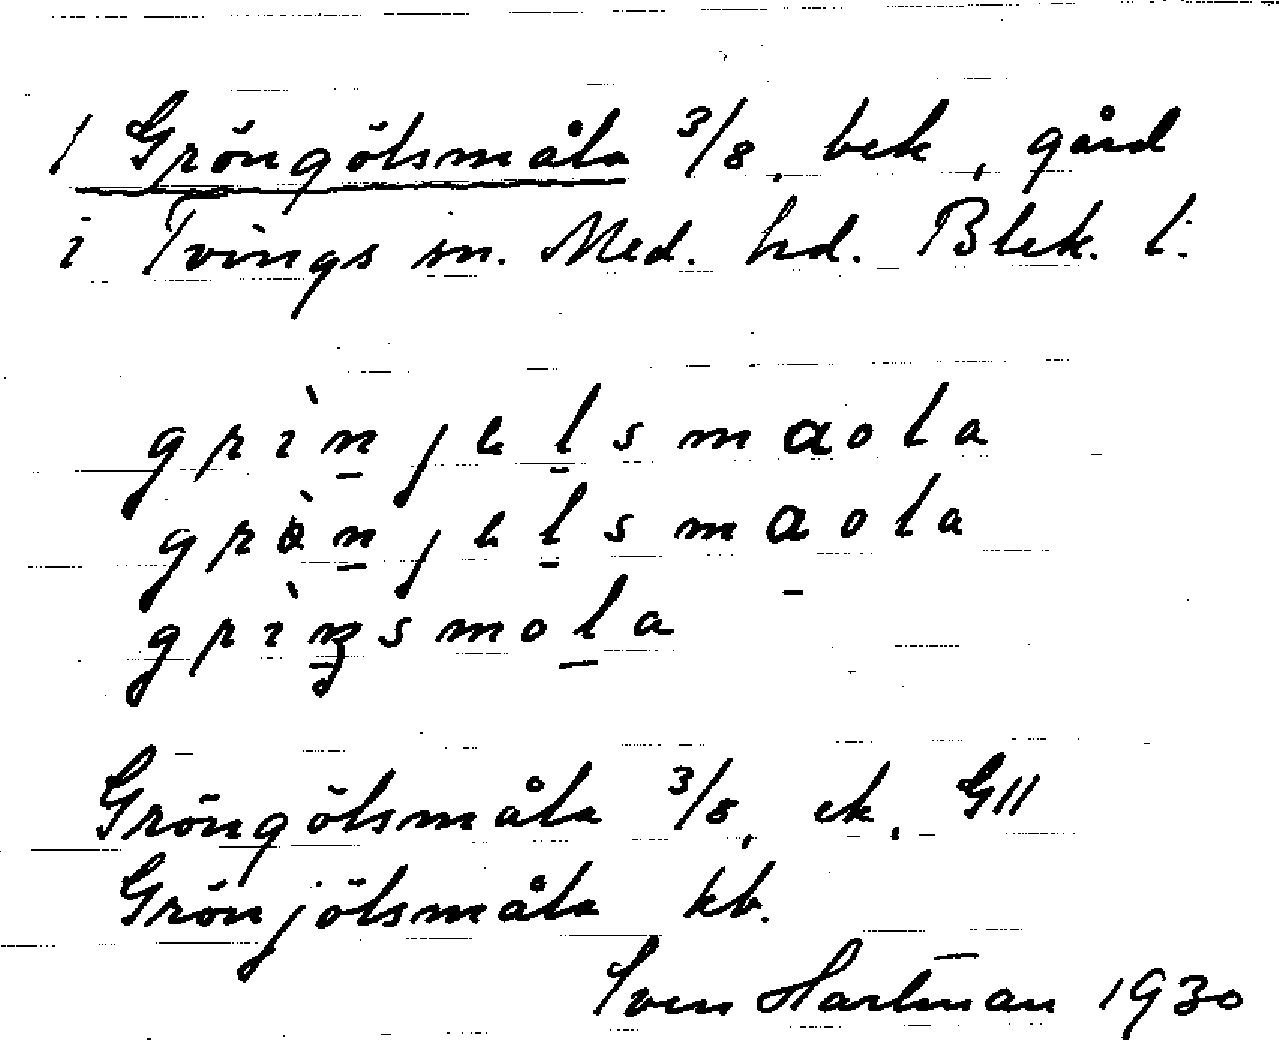 1 Gröngölsmåla 3/8, bek, gård
i Tvings sn. Med. hd. Blek. l.
grìnjɛlsmaola
grònjɛlsmaola
grìnsmola
Gröngölsmåla 3/8, ek, GII
Grönjölsmåla kb.
Sven Hartman 1930